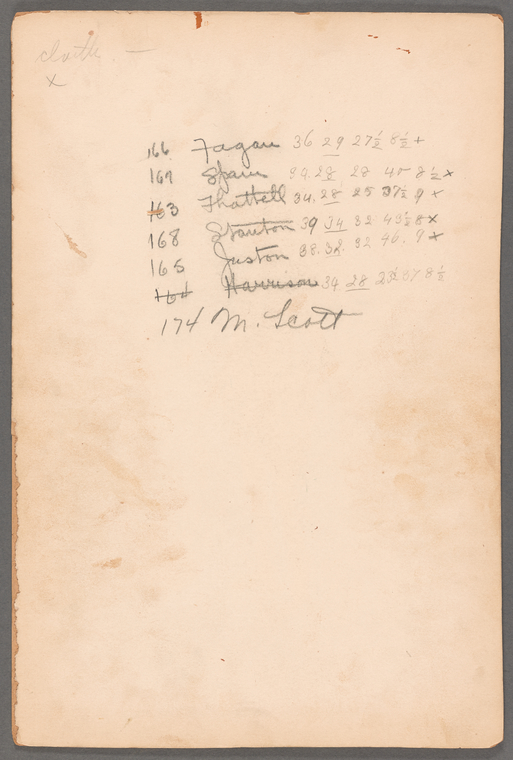 cloth —
x
166 Fagan 36 29 27½ 8½ +
169 Spain 34. 28 28 40 8½ x
163 Thattell 34. 28 25 37½ 9 x
168 Stanton 39 34 32 43½ 8 x
165 Juston 38. 32. 32 46. 9 x
164 Harrison 34 28 23½ 37 8½
174 M. Scott